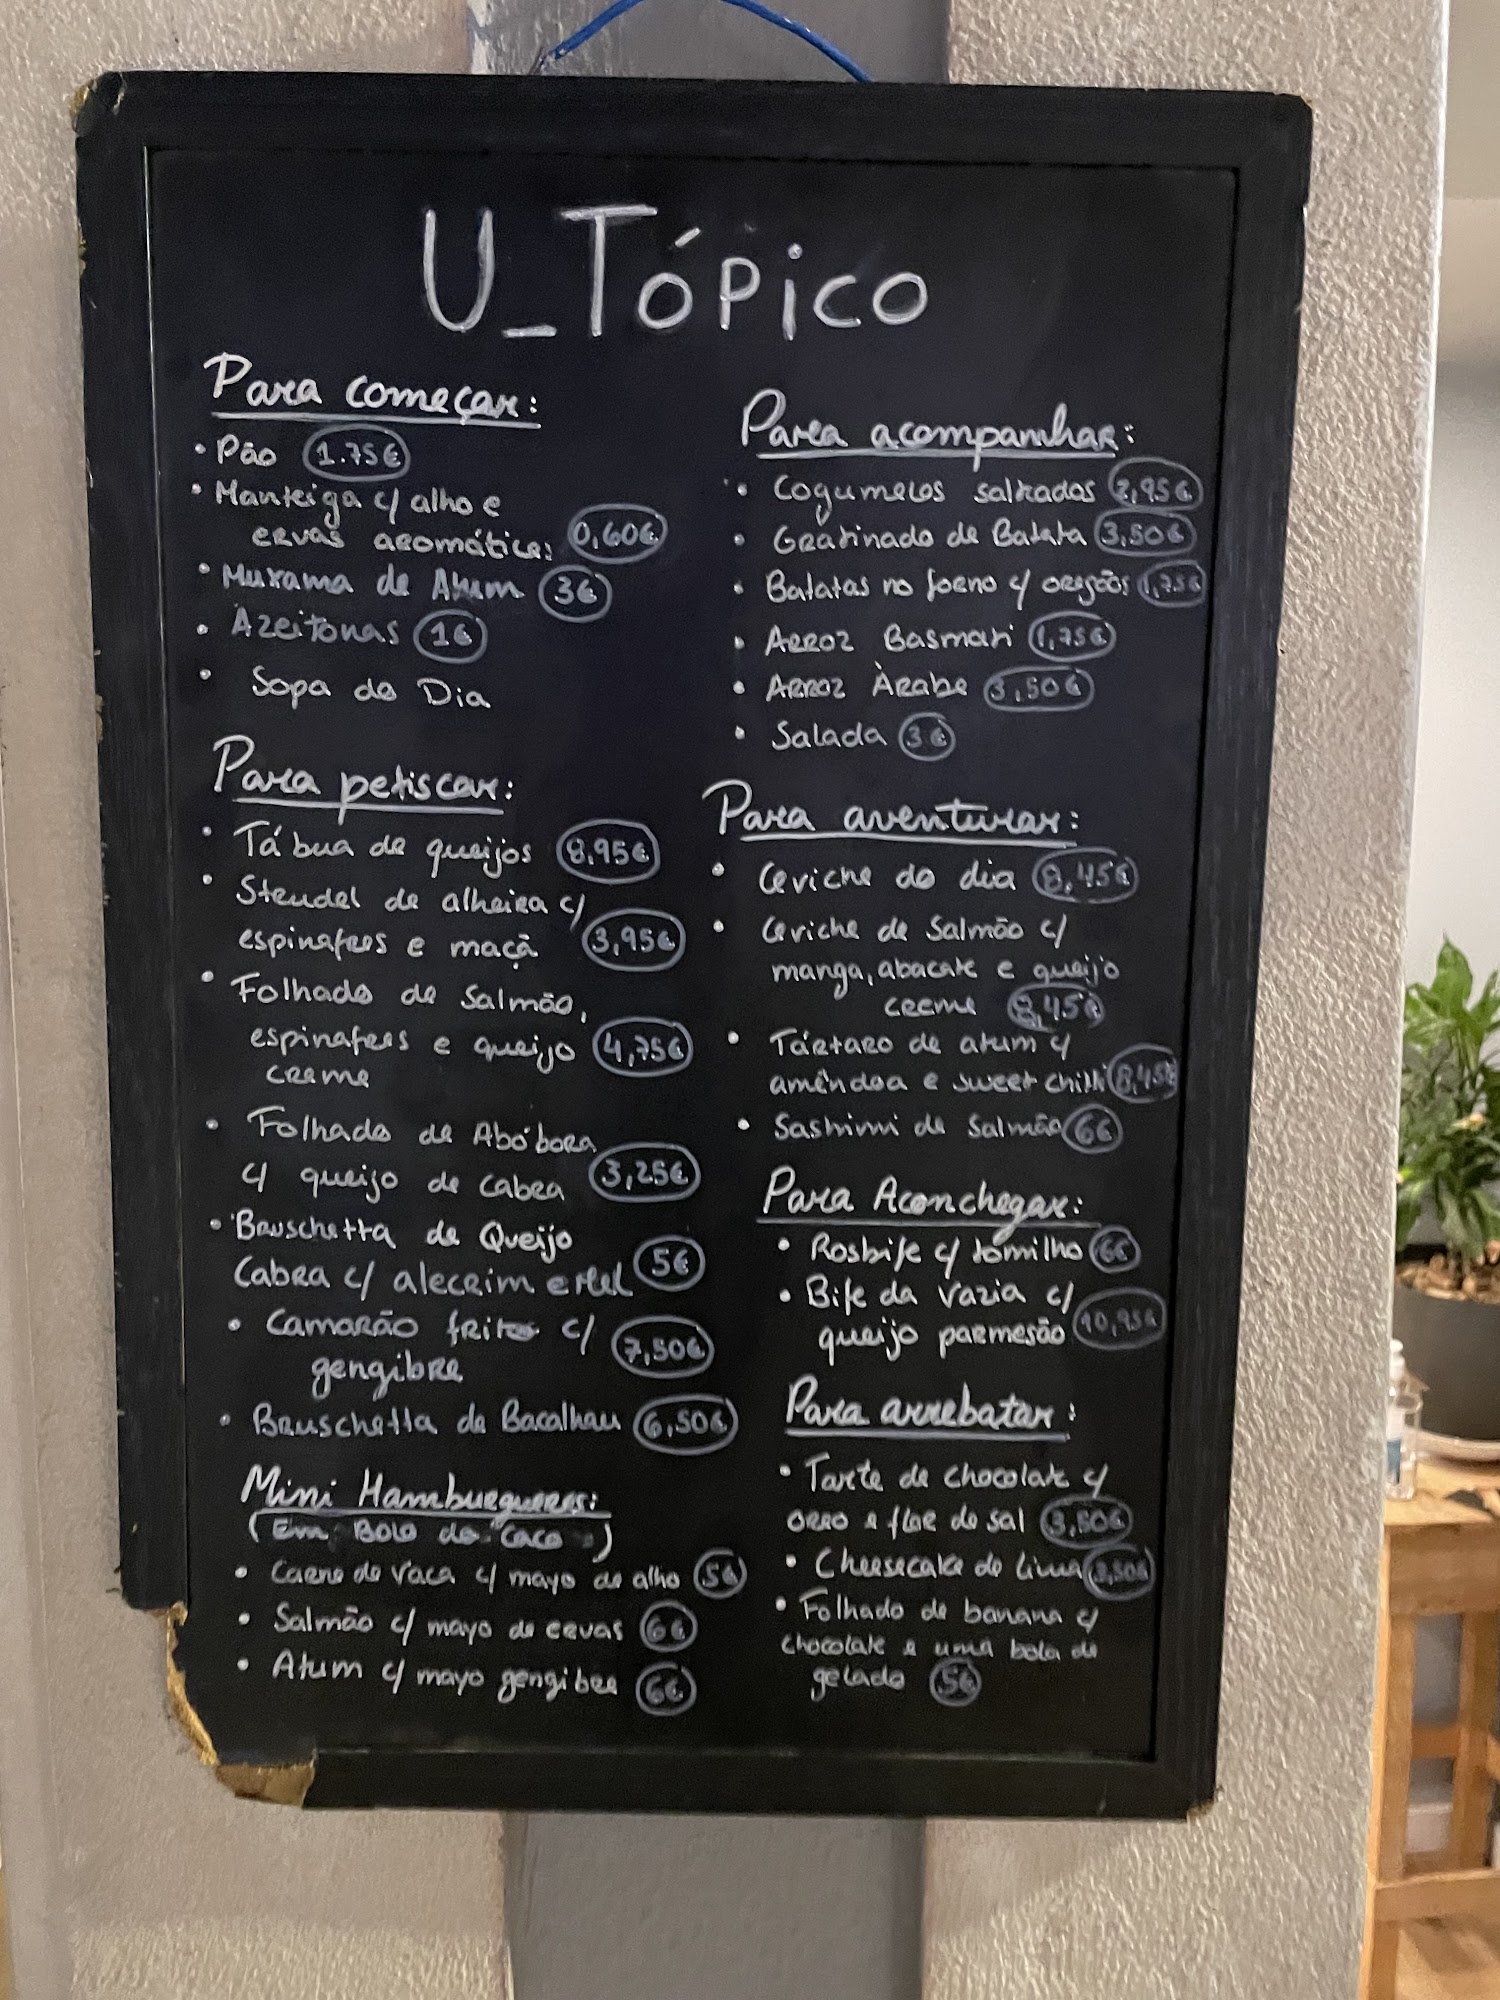 U_Tópico
Para começar:
• Pão 1.75€
• Manteiga c/ alho e
ervas aromáticas 0,60€
• Muxama de Atum 3€
• Azeitonas 1€
• Sopa do Dia
Para petiscar:
• Tábua de queijos 8,95€
• Strudel de alheira c/
espinafres e maçã 3,95€
• Folhado de salmão,
espinafres e queijo 4,75€
creme
• Folhado de Abóbora
c/ queijo de cabra 3,25€
• Bruschetta de Queijo
Cabra c/ alecrim e Mel 5€
• Camarão frito c/
gengibre 7,50€
• Bruschetta de Bacalhau 6,50€
Mini Hambúrgueres:
(Em Bolo do Caco)
• Carne de vaca c/ mayo de alho 5€
• Salmão c/ mayo de ervas 6€
• Atum c/ mayo gengibre 6€
Para acompanhar:
• Cogumelos salteados 2,95€
• Gratinado de Batata 3,50€
• Batatas no forno c/ oregãos 1,75€
• Arroz Basmati 1,75€
• Arroz Àrabe 3,50€
• Salada 3€
Para aventurar:
• Ceviche do dia 8,45€
• Ceviche de Salmão c/
manga, abacate e queijo
creme 8,45€
• Tártaro de atum c/
amêndoa e sweet chilli 8,45€
• Sashimi de Salmão 6€
Para Aconchegar:
• Rosbife c/ tomilho 6€
• Bife da Vazia c/
queijo parmesão 10,95€
Para arrebatar:
• Tarte de chocolate c/
ouro e flor de sal 3,50€
• Cheesecake de Lima 3,50€
• Folhado de banana c/
chocolate e uma bola de
gelado 5€